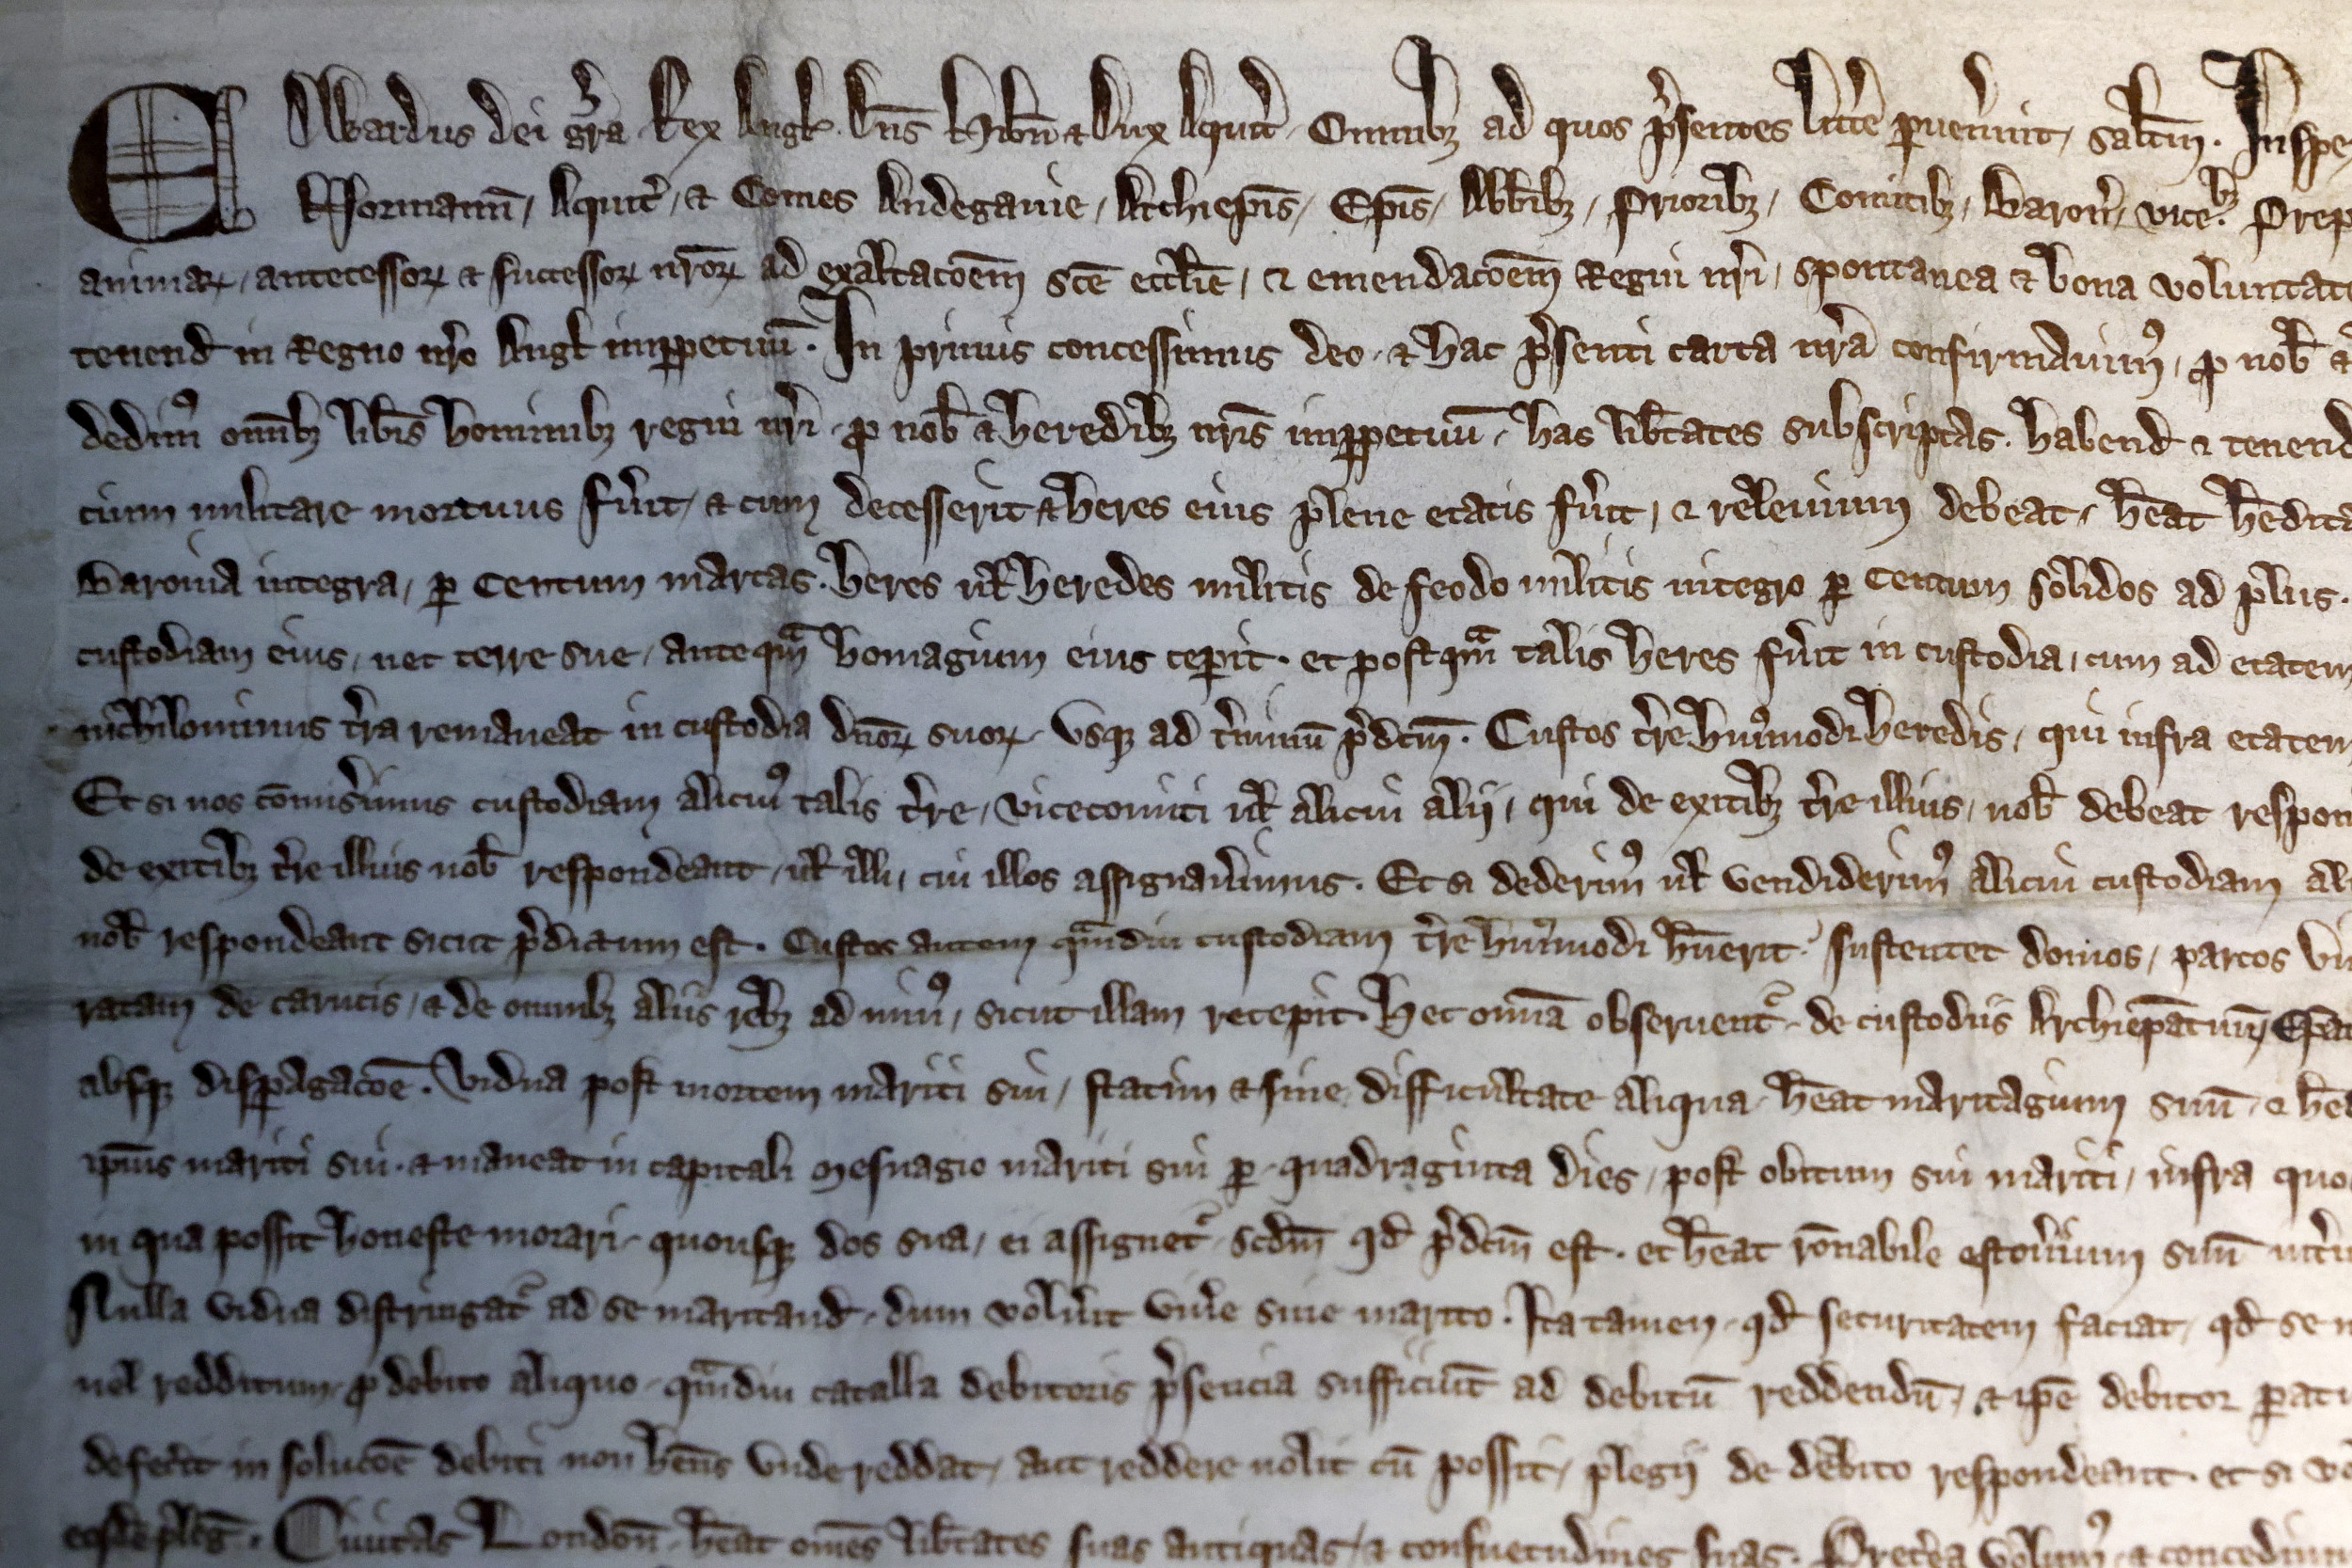 Edwardus dei gr̄a Rex Angl Dn̄s Hib̄n & Dux Aquit̄ Omnib; ad quos p̄sentes litt̄e p̄uen̄int, salt̄m. Inspe
Normann̄, Aquit̄, & Comes Andegauie, Archiep̄is, Ep̄is, Abb̄ib;, Priorib;, Comitib;, Baron̄, vice.b; Prep
animaꝝ, antecessoꝝ & successoꝝ nr̄oꝝ ad exaltac̄oem sc̄e eccl̄ie, & emendac̄oem Regni nr̄i, spontanea & bona voluntate
tenend̄ in Regno nr̄o Angl imꝑpetuū. In primis concessimus deo & hac p̄senti carta nr̄a confirmauimꝰ, ꝓ nob̄ &
dedimꝰ omīb; lib̄is hominib; regni nr̄i ꝓ nob̄ & heredib; nr̄is imꝑpetuū, has lib̄tates subscriptas. habend̄ & tenend
cium militare mortuus fūit, & cum decesserit & heres eius plene etatis fūit, & releuium debeat, h̄eat h̄edita
Baronia integra, ꝑ Centum marcas. heres ul̄ heredes militis de feodo militis integro ꝑ Centum solidos ad plus.
custodiam eius, nec terre sue, anteqᵃm homagium eius ceꝑit. et postqᵃm talis heres fūit in custodia, cum ad etatem
nichilominus t̄ra remaneat in custodia dn̄oꝝ suoꝝ, vsq; ad t̄minū p̄dc̄m. Custos t̄re huiꝰmodi heredis, qui infra etatem
Et si nos cōmis̄imus custodiam alicuiꝰ talis t̄re, vicecomiti ul̄ alicui alij, qui de exitib; t̄re illius, nob̄ debeat respon
de exitib; t̄re illius nob̄ respondeant, ul̄ illi, cui illos assignau̇imus. Et si dederimꝰ ul̄ vendiderimꝰ alicui custodiam ali
nob̄ respondeant sicut p̄dictum est. Custos autem qᵃmdiu custodiam t̄re huiꝰmodi h̄uerit. sustentet domos, parcos vi
ratam de carucis, & de omnib; aliis reb; ad minꝰ, sicut illam recepit. Hec om̄ia obseruent̄, de custodiis Archiep̄atuū, Ep̄a
absq; disꝑagac̄oe. Vidua post mortem mariti sui, statim & sine difficultate aliqua h̄eat maritagium suū, & he
ip̄ius mariti sui. & maneat in capitali mesuagio mariti sui ꝑ quadraginta dies, post obitum sui mariti, infra quo
in qua possit honeste morari, quousq; dos sua, ei assignet̄, scd̄m qd̄ p̄dc̄m est. et h̄eat r̄onabile estou̇ium suū int̄i
Nulla vidua distringat̄ ad se maritand̄, dum volūit viūe sine marito. Ita tamen, qd̄ securitatem faciat, qd̄ se n
uel redditum, ꝓ debito aliquo, qᵃmdiu catalla debitoris p̄sencia sufficiūt ad debitū reddendū, & ip̄e debitor ꝑati
defec̄it in soluc̄oe debiti non h̄ens vnde reddat, aut reddere nolit cū possit, plegij de debito respondeant. et si vo
eosdē pleḡ. Ciuitas London̄ h̄eat om̄es lib̄tates suas antiquas, & consuetudines suas. Pret̄ea volumꝰ & concedim